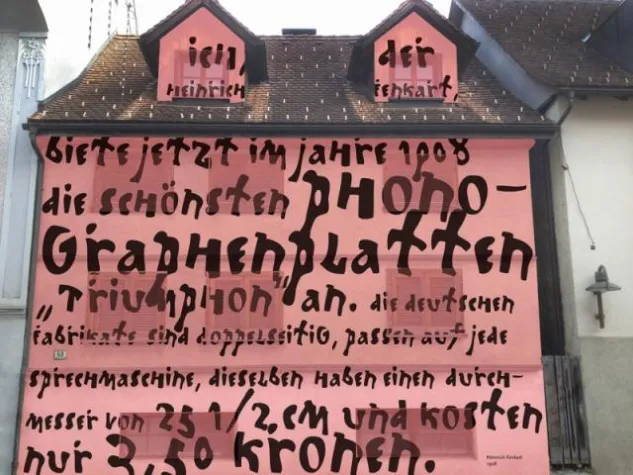 ich, der
Heinrich Fenkart,
biete jetzt im jahre 1908
die schönsten phono-
Graphenplatten
„Triumphon“ an. die deutschen
fabrikate sind doppelseitig, passen auf jede
sprechmaschine, dieselben haben einen durch-
messer von 25 1/2 cm und kosten
nur 3,50 kronen.
Heinrich Fenkart
1908